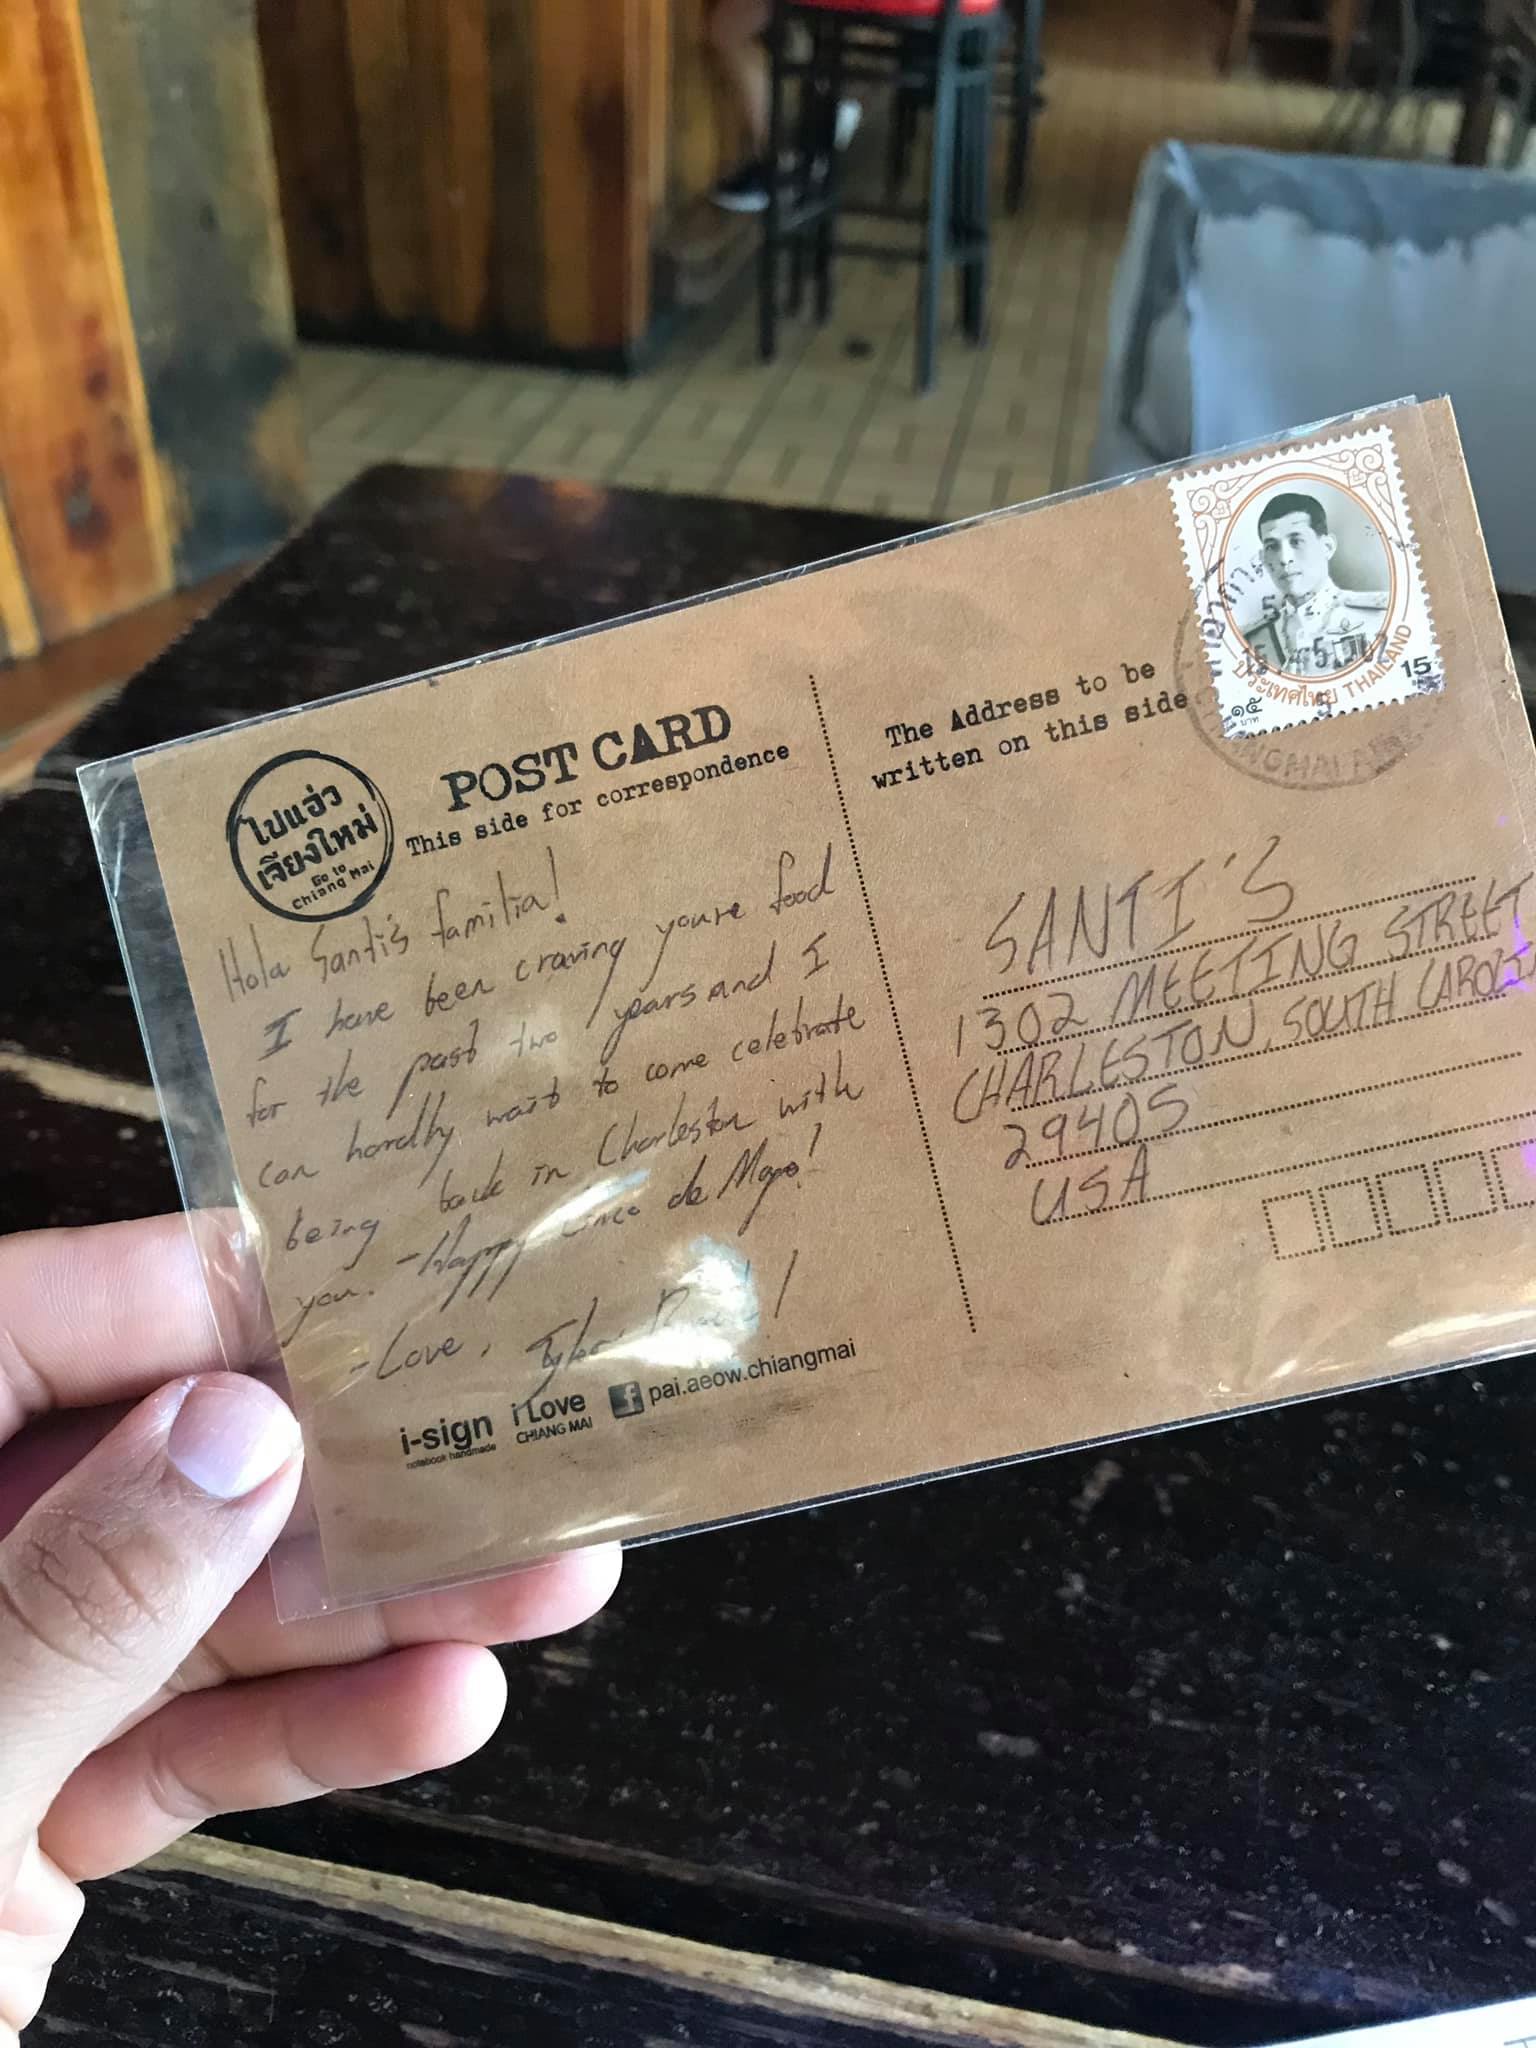 ไปแอ่ว
เจียงใหม่
Go to
Chiang Mai
POST CARD
This side for correspondence
Hola Santi's familia!
I have been craving youre food
for the past two years and I
can hardly wait to come celebrate
being back in Charleston with
you. -Happy Cinco de Mayo!
-Love, Tyler
i-sign
notebook handmade
i Love
CHIANG MAI
f pai.aeow.chiangmai
The Address to be
written on this side
ประเทศไทย THAILAND
๑๕
บาท
15
SANTI'S
1302 MEETING STREET
CHARLESTON, SOUTH CAROLIN
29405
USA